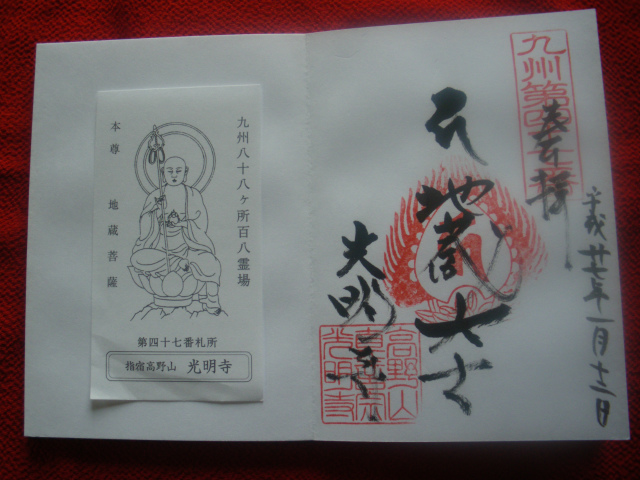 九州八十八ヶ所百八霊場
本尊 地蔵菩薩
第四十七番札所
指宿高野山 光明寺
九州第四十七番
奉拝
平成廿七年一月十三日
地蔵大士
光明寺
高野山
光明寺